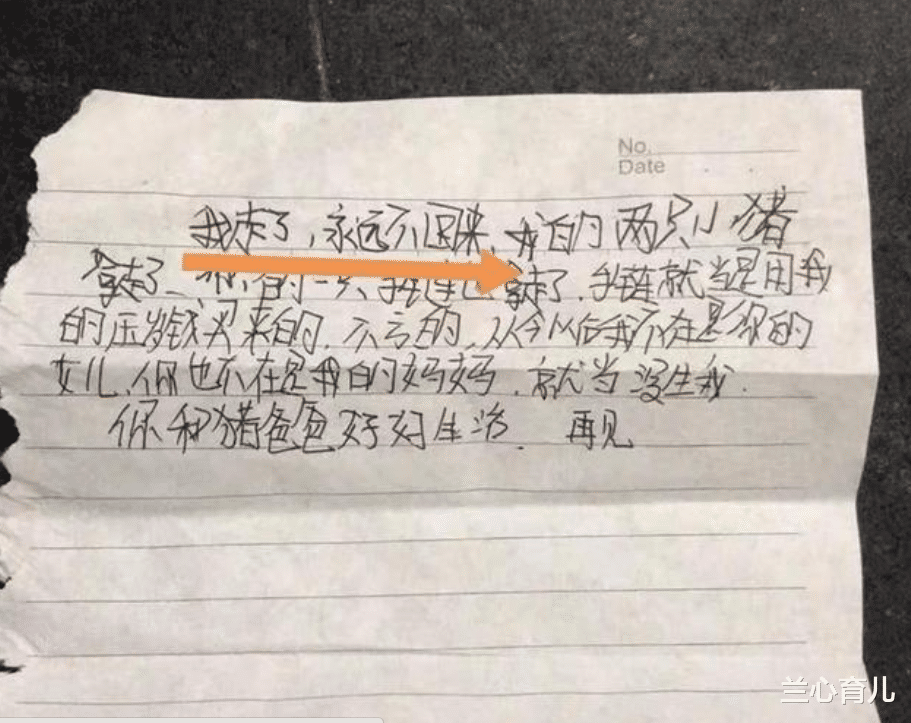 No.
Date
我走了，永远不回来，我的两只小猪
拿走了、你的一只手链也拿走了．手链就当是用我
的压岁钱买来的．不亏的．从今以后我不在是你的
女儿、你也不在是我的妈妈．就当没生我．
你和猪爸爸好好生活．再见
兰心育儿